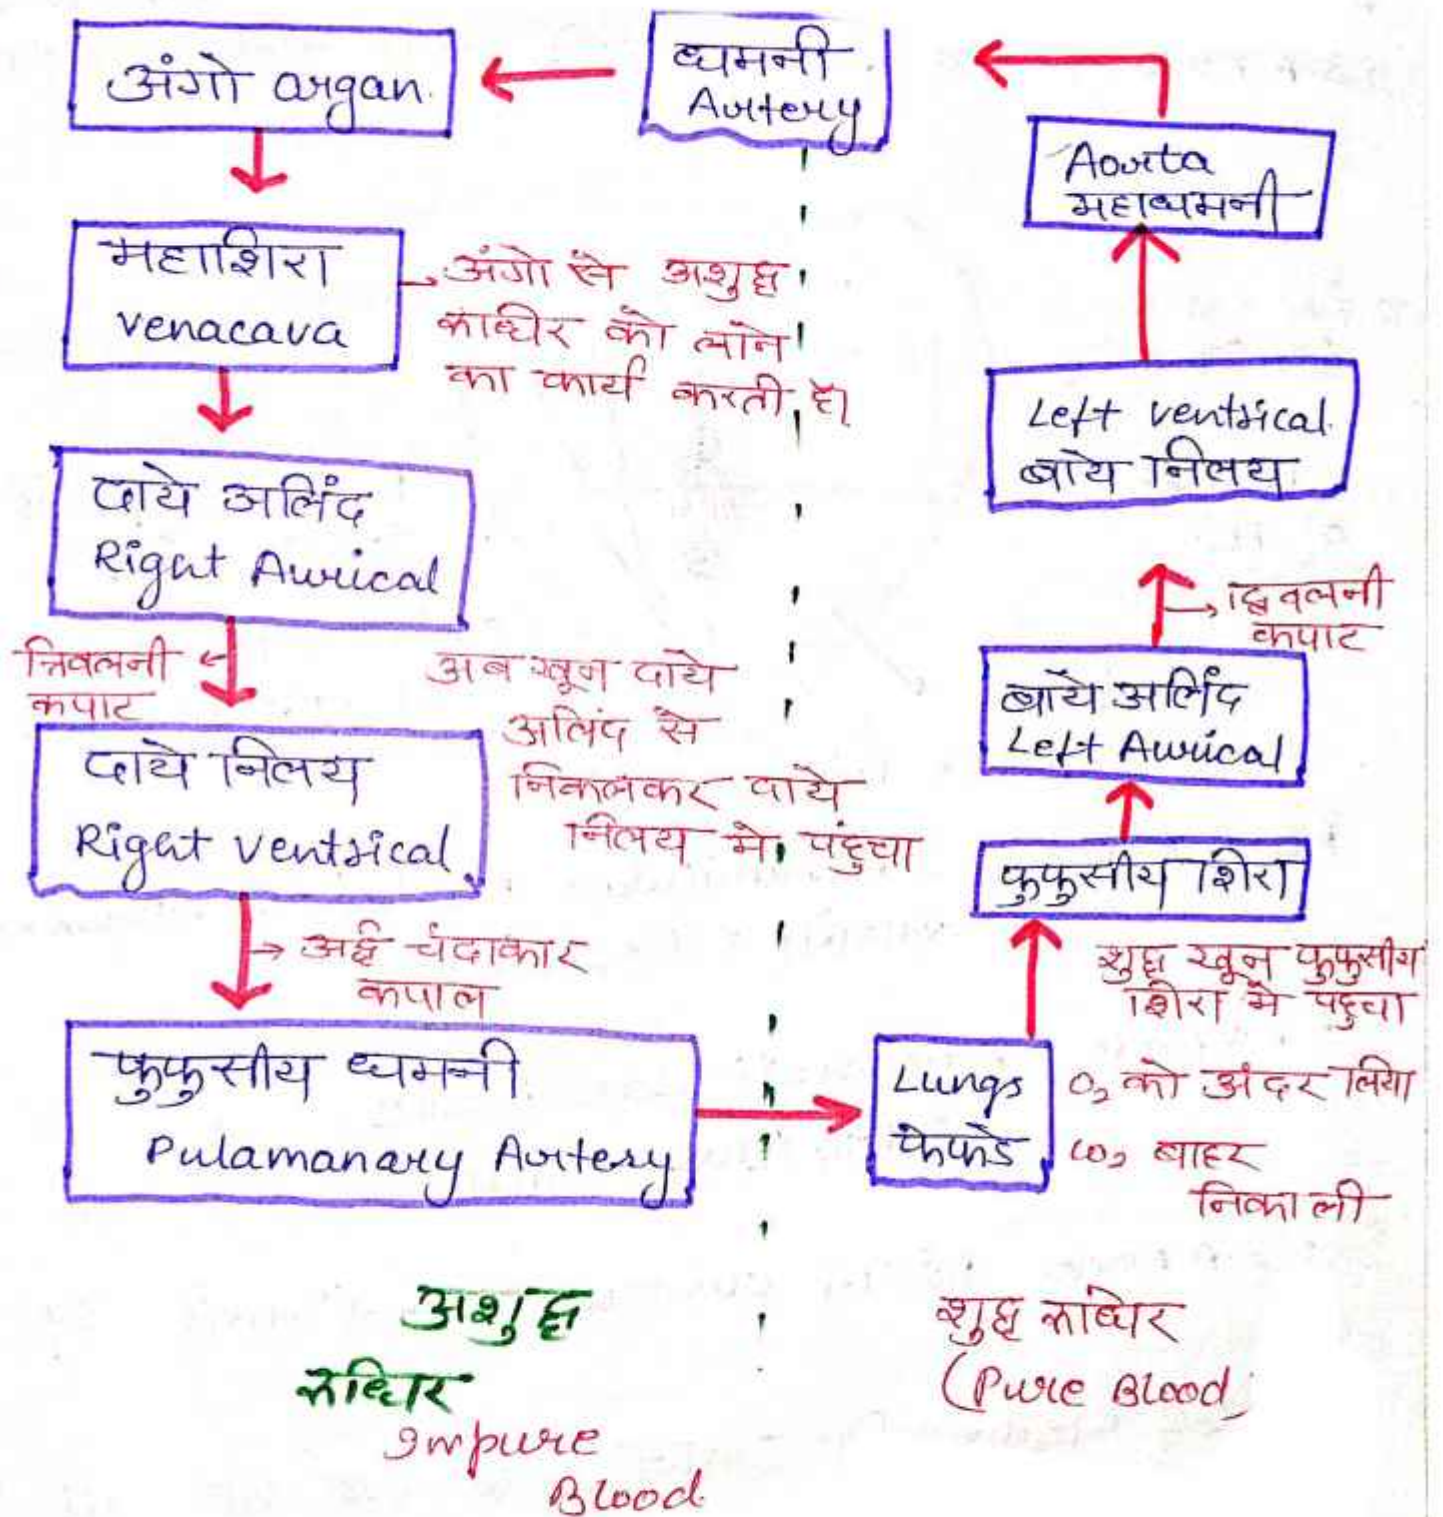 अंगो argan.
धमनी
Artery
Aorta
महाधमनी
महाशिरा
venacava
अंगो से अशुद्ध
रूधीर को लाने
का कार्य करती है।
Left ventrical.
बाये निलय
दाये अलिंद
Right Aurical
द्विवलनी
कपाट
त्रिवलनी
कपाट
अब खून दाये
अलिंद से
निकलकर दाये
निलय मे पंहुचा
बाये अलिंद
Left Aurical
दाये निलय
Right ventrical
फुफुसीय शिरा
अर्द्ध चंदाकार
कपाल
शुद्ध खून फुफुसीय
शिरा मे पहुचा
फुफुसीय धमनी
Pulamanary Artery
Lungs
फेफडे
O₂ को अंदर लिया
CO₂ बाहर
निकाली
अशुद्ध
रूधिर
Impure
Blood
शुद्ध रूधिर
(Pure Blood)